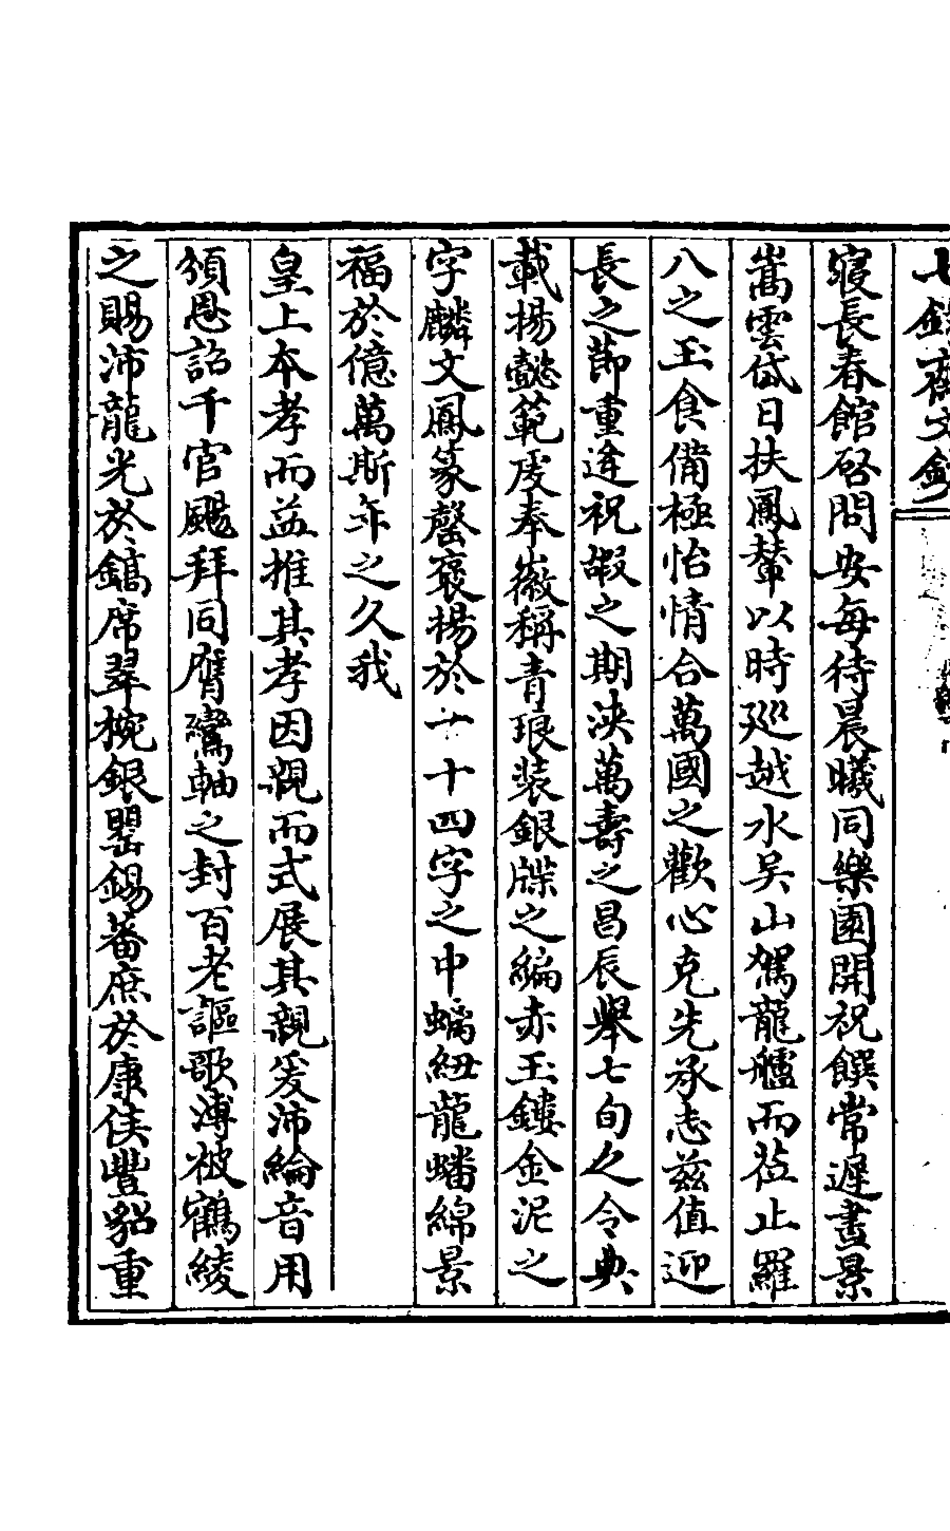 寢長春館啓問安每待晨曦同樂園開祝饌常遲晝景
嵩雲岱日扶鳳輦以時廵越水吴山駕龍艫而莅止羅
八之玉食備極怡情合萬國之歡心克先承志兹值迎
長之節重逢祝嘏之期浹萬壽之昌辰舉七旬之令典
載揚懿範虔奉徽稱青琅裝銀牒之編赤玉鏤金泥之
字麟文鳳篆罄褒揚於十四字之中螭紐龍蟠綿景
福於億萬斯年之久我
皇上本孝而益推其孝因親而式展其親爰沛綸音用
頒恩詔千官颺拜同膺鸞軸之封百老謳歌溥被鶴綾
之賜沛龍光於鎬席翠椀銀罌錫蕃庶於康侯豐貂重